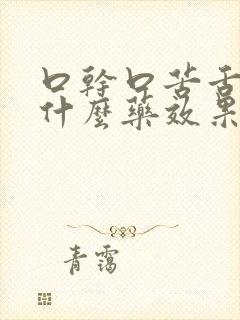 口幹口苦舌
什麼藥效果
青靄